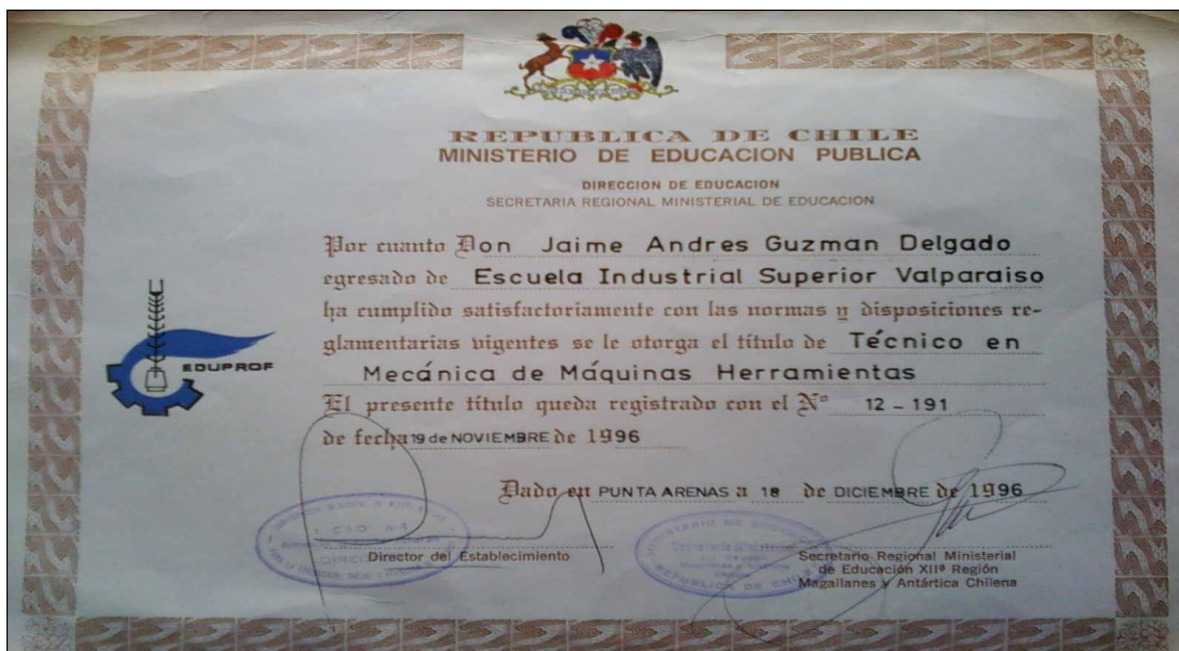 REPUBLICA DE CHILE
MINISTERIO DE EDUCACION PUBLICA
DIRECCION DE EDUCACION
SECRETARIA REGIONAL MINISTERIAL DE EDUCACION
Por cuanto Don Jaime Andres Guzman Delgado
egresado de Escuela Industrial Superior Valparaiso
ha cumplido satisfactoriamente con las normas y disposiciones re-
glamentarias vigentes se le otorga el título de Técnico en
Mecánica de Máquinas Herramientas
EDUPROF
El presente título queda registrado con el Nº 12 - 191
de fecha 19 de NOVIEMBRE de 1996
Dado en PUNTA ARENAS a 18 de DICIEMBRE de 1996
LICEO A4
DIREC
Director del Establecimiento
MINISTERIO DE
REPUBLICA DE CHILE
Secretario Regional Ministerial
de Educación XIIª Región
Magallanes y Antártica Chilena